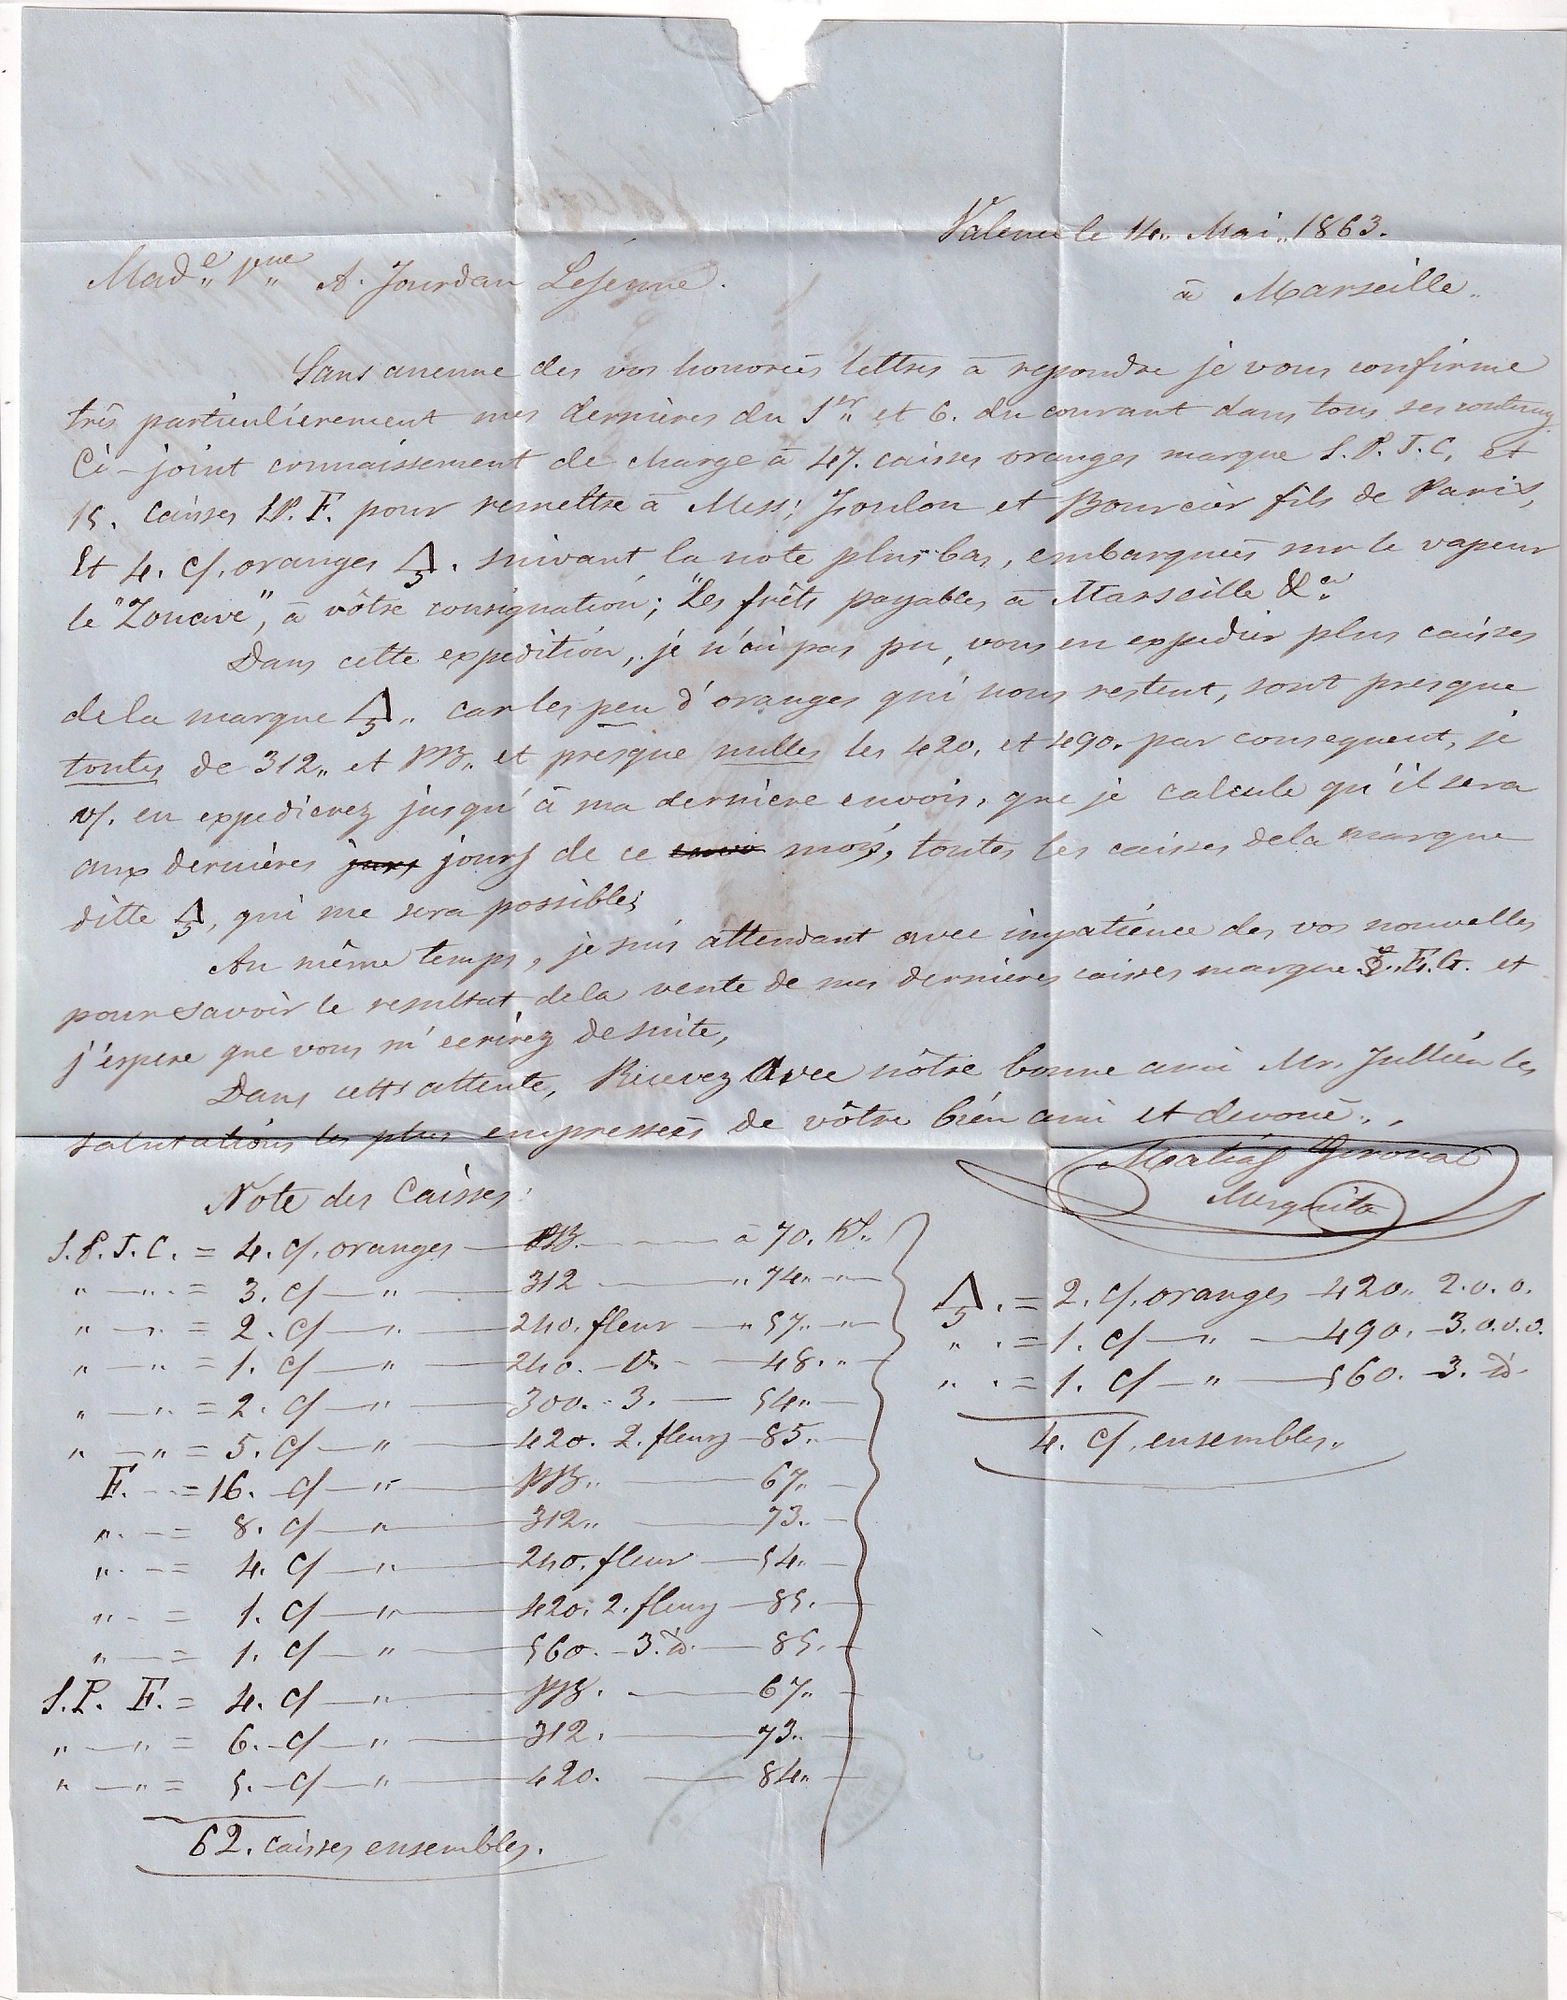 Valence le 14„ Mai„ 1863.
Mad.e V.ve A. Jourdan Lejeune.
à Marseille„
Sans aucune des vos honorées lettres à repondre je vous confirme
três particulièrement mes dernières du 1er„ et 6. du courant dans tous ses
Ci-joint connaissement de charge à 47. caisses oranges marque S. P. J. C. et
15. caisses S.P. F. pour remettre à Mess; Joulon et Bourcier fils de Paris,
Et 4. c/. oranges suivant la note plus bas, embarquées sur le vapeur
le "Zouave", à vôtre consignation; "Les frêts payables à Marseille &a
Dans cette expedition, je n'ai pas pu, vous en expedier plus caisses
de la marque car les peu d'oranges qui nous restent, sont presque
toutes de 312„ et et presque nulles les 420. et 490. par consequent, je
v/. en expedierez jusqu'à ma derniere envois, que je calcule qu'il sera
aux dernières jours jours de ce envoi mois, toutes les caisses de la marque
ditte qui me sera possible;
Au même temps, je suis attendant avec impatience des vos nouvelles
pour savoir le resultat de la vente de mes dernières caisses marque F.G. et
j'espere que vous m'ecrirez de suite,
Dans cette attente, Recevez avec nôtre bonne ami Mr. Jullien les
salutations les plus empressées de vôtre bien ami et devoué„
Matias Gironat
Mesquita
Note des Caisses:
S.P.J.C. = 4. c/. oranges — — à 70. Kl„
„ —„— = 3. c/ — „ — 312 — „ 74„ „
„ —„— = 2. c/ — „ — 240. fleur — „ 57„ „
„ —„— = 1. c/ — „ — 240. — — 48. „
„ —„— = 2. c/ — „ — 300. - 3. — 54„ —
„ —„— = 5. c/ — „ — 420. 2. fleurs — 85„ —
F. — = 16. c/ — „ — — 67„ —
„. — = 8. c/ — „ — 312„ — 73. —
„. — = 4. c/ — „ — 240. fleur — 54„ —
„. — = 1. c/ — „ — 420. 2. fleurs — 85. —
„. — = 1. c/ — „ — 560. — 3. d. — 85. —
S.P. F. = 4. c/ — „ — — 67„ —
„ —„— = 6. c/ — „ — 312. — 73„ —
„ —„— = 5. c/ — „ — 420. — 84„ —
62. caisses ensembles.
= 2. c/. oranges — 420„ 2. o. o.
„ . = 1. c/ — „ — 490. — 3. o. o. o.
„ . = 1. c/ — „ — 560. — 3. d.
4. c/. ensembles„